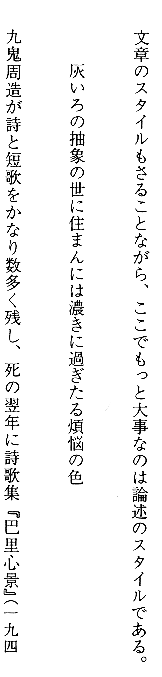 文章のスタイルもさることながら、ここでもっと大事なのは論述のスタイルである。
灰いろの抽象の世に住まんには濃きに過ぎたる煩悩の色
九鬼周造が詩と短歌をかなり数多く残し、死の翌年に詩歌集『巴里心景』（一九四